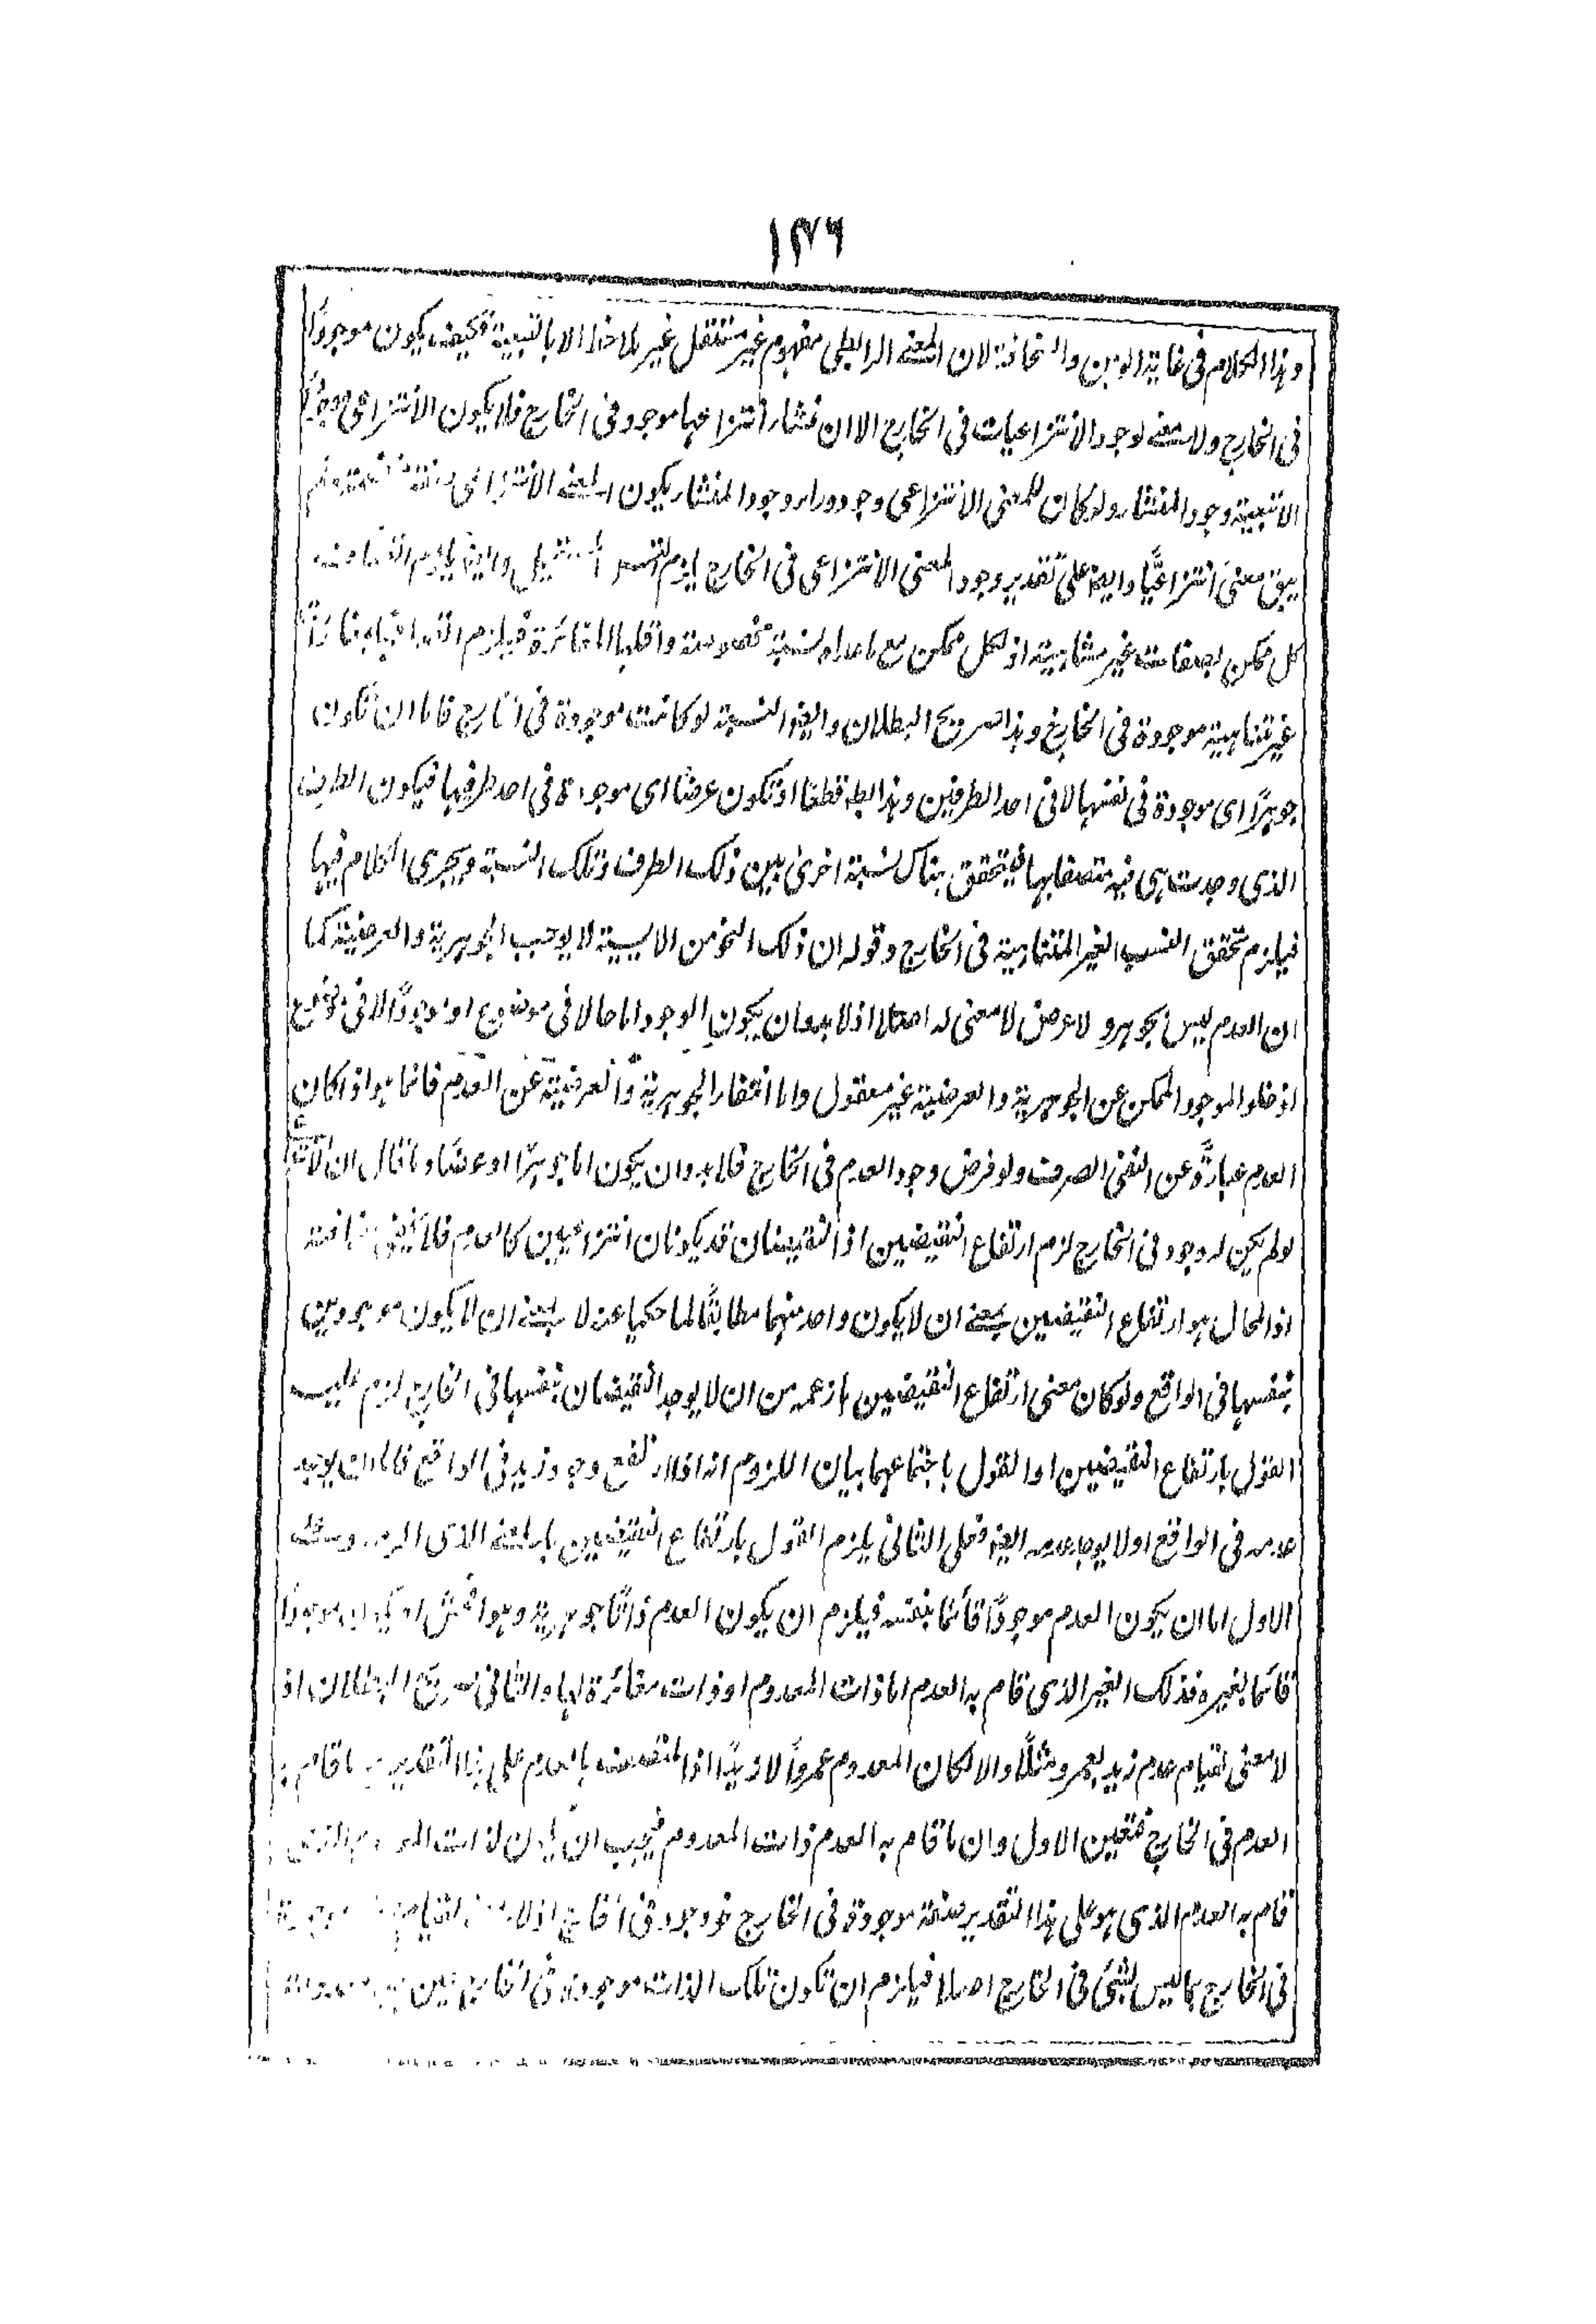 ١٣٦
وهذا الكلام فى غاية الوهن والسخافة لان المعنى الرابطى مفهوم غير مستقل غير ملاحظ الا بالتبعية فكيف يكون موجودًا
فى الخارج ولا معنى لوجود الانتزاعيات فى الخارج الا ان منشاء انتزاعها موجود فى الخارج فلا يكون الانتزاعى موجودًا
الا تبعية وجود المنشاء ولو كان للمعنى الانتزاعى وجود وراء وجود المنشاء يكون المعنى الانتزاعى
يبق معنىً انتزاعيًّا وايضا على تقدير وجود المعنى الانتزاعى فى الخارج يلزم وايضا يلزم اتصاف
كل ممكن بصفات غير متناهية اذ لكل ممكن مع ما عداه نسبة مخصوصة واقلها المغائرة فيلزم
غير متناهية موجودة فى الخارج وهذا صريح البطلان وايضا النسبة لو كانت موجودة فى الخارج فاما ان تكون
جوهرًا اى موجودة فى نفسها لا فى احد الطرفين وهذا بط قطعًا او تكون عرضًا اى موجودة فى احد طرفيها فيكون الطرف
الذى وجدت هى فيه متصفا بها فيتحقق هناك نسبة اخرى بين ذلك الطرف وتلك النسبة ويجرى الكلام فيها
فيلزم تحقق النسب الغير المتناهية فى الخارج وقوله ان ذلك النحو من الايسية لا يوجب الجوهرية والعرضية كما
ان العدم ليس بجوهر ولا عرض لا معنى له اصلا اذ لا بد وان يكون الوجود اما حالا فى موضوع او موجودًا لا فى موضوع
اذ خلو الموجود الممكن عن الجوهرية والعرضية غير معقول واما انتفاء الجوهرية والعرضية عن العدم فانما هو اذا كان
العدم عبارة عن النفى الصرف ولو فرض وجود العدم فى الخارج فلا بد وان يكون اما جوهرًا او عرضًا وما قال ان
لو لم يكن له وجود فى الخارج لزم ارتفاع النقيضين اذ النقيضان قد يكونان انتزاعيين كالعدم فلا يخفى سخافته
اذ المحال هو ارتفاع النقيضين بمعنى ان لا يكون واحد منهما مطابقًا لما حكيا عنه لا بمعنى ان لا يكون موجودين
بنفسها فى الواقع ولو كان معنى ارتفاع النقيضين ما زعمه من ان لا يوجد النقيضان بنفسها فى الخارج لزم عليه
القول بارتفاع النقيضين او القول باجتماعهما بيان اللزوم انه اذا ارتفع وجود زيد فى الواقع فاما ان يوجد
عدمه فى الواقع او لا يوجد عدمه ايضا فعلى الثانى يلزم القول بارتفاع النقيضين بالمعنى الذى وعلى
الاول اما ان يكون العدم موجودًا قائما بنفسه فيلزم ان يكون العدم ذاتًا جوهرية وهو افحش او يكون موجودًا
قائما بغيره فذلك الغير الذى قام به العدم اما ذات المعدوم او ذات مغائرة لها والثانى صريح البطلان اذ
لا معنى لقيام عدم زيد بعمرو مثلًا والا لكان المعدوم عمروًا لا زيدًا اذ المتصف بالعدم على هذا التقدير ما قام به
العدم فى الخارج فتعين الاول وان ما قام به العدم ذات المعدوم فيجب ان يكون لذات
قام به العدم الذى هو على هذا التقدير صفة موجودة فى الخارج نحو وجود فى الخارج اذ لا
فى الخارج بما ليس بشئ فى الخارج اصلا فيلزم ان تكون تلك الذات موجودة فى الخارج حين